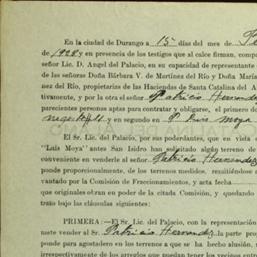 En la ciudad de Durango a 15 días del mes de
de 1928 y en presencia de los testigos que al calce firman, compa
señor Lic. D. Angel del Palacio, en su capacidad de representante
de las señoras Doña Bárbara V. de Martínez del Río y Doña María
nez del Río, propietarias de las Haciendas de Santa Catalina del A
tivamente, y por la otra el señor Patricio Hernández
parecientes personas aptas para contratar y obligarse, el primero de
y en segundo en P. Luis Moya
El Sr. Lic. del Palacio, por sus poderdantes, que en vista
"Luis Moya" antes San Isidro han solicitado algún terreno de
conveniente en venderle al señor Patricio Hernández
ponde proporcionalmente, de los terrenos medidos, resultándose
vantado por la Comisión de Fraccionamientos, y acta fecha
que originales obran en poder de la citada Comisión, y quedando
trato bajo las cláusulas siguientes:
PRIMERA:—El Sr. Lic. del Palacio, con la representación
mete vender al Sr. Patricio Hernandez la parte prop
ponde para agostadero en los terrenos a que se ha hecho alusión,
irrespectivamente de los arreglos que puedan tener los vecinos entre